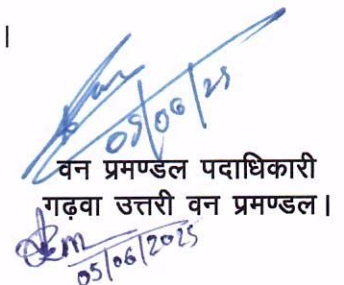 ।
05/06/25
वन प्रमण्डल पदाधिकारी
गढ़वा उत्तरी वन प्रमण्डल।
05/06/2025